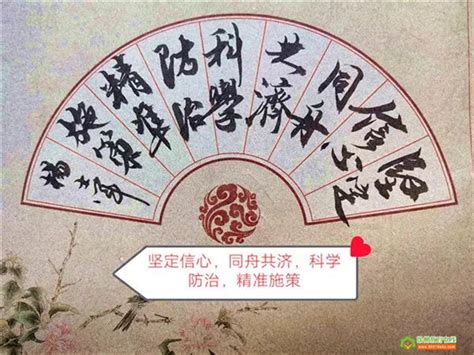 坚定
信心
同舟
共濟
科學
防治
精準
施策
坚定信心，同舟共济，科学
防治，精准施策